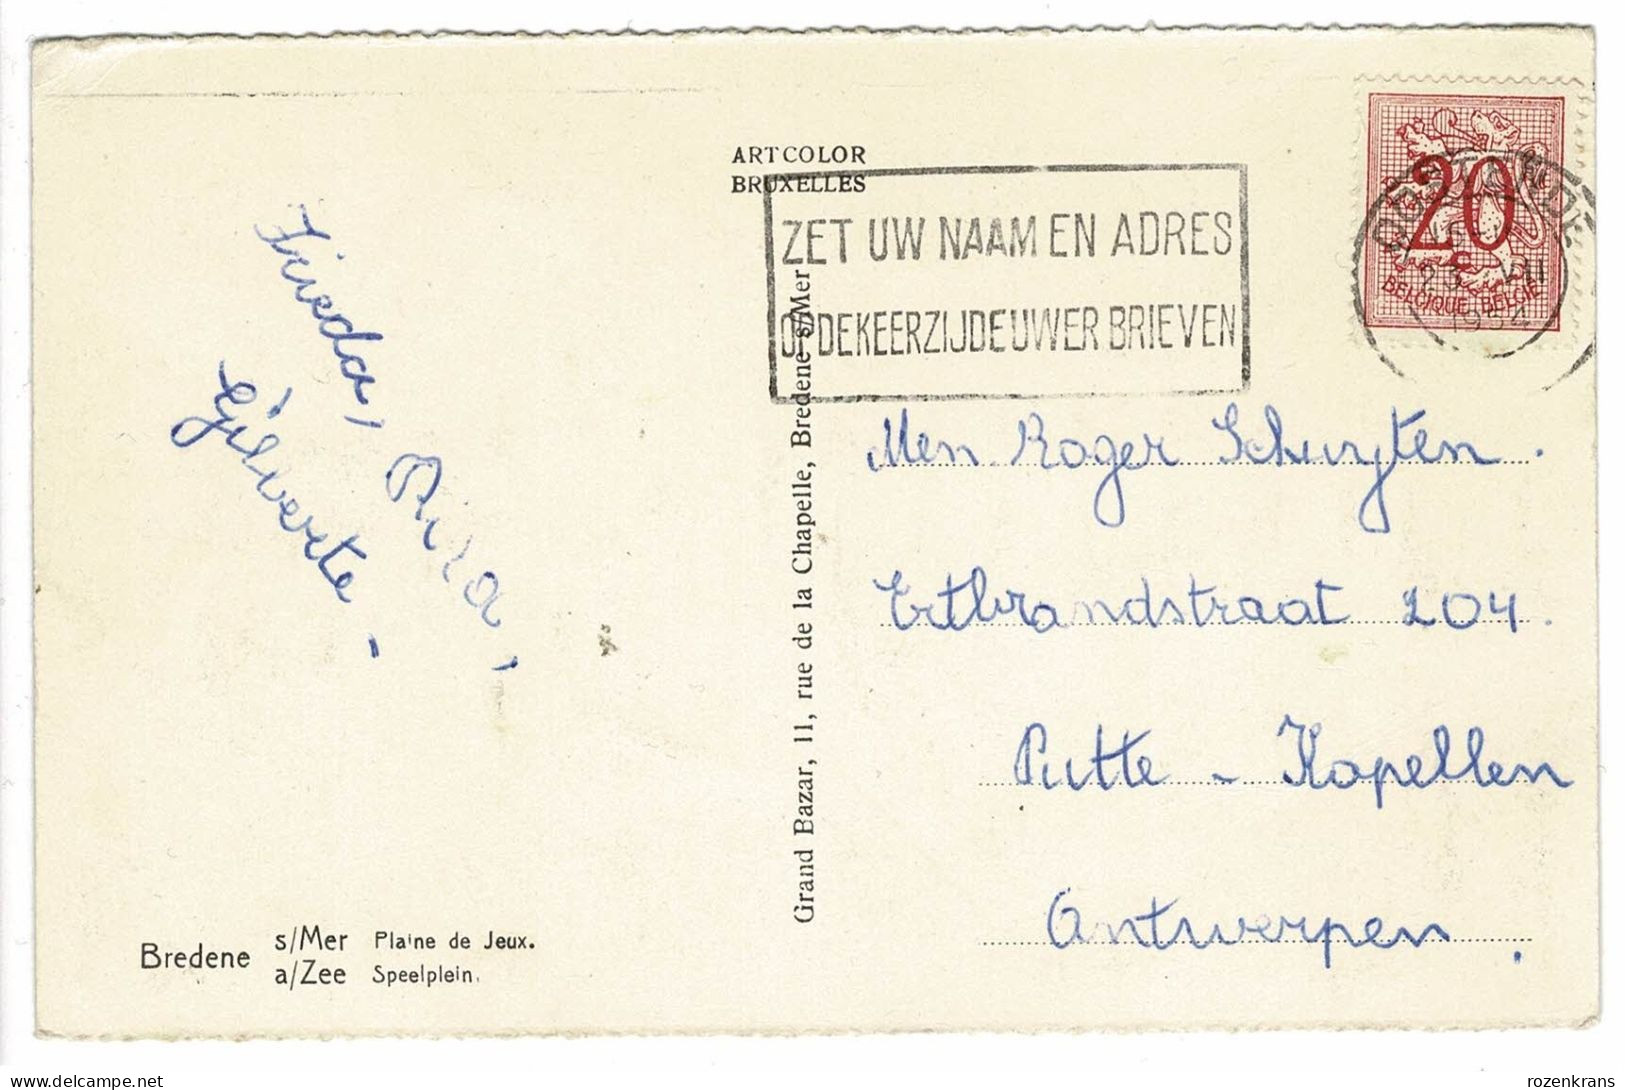 ARTCOLOR
BRUXELLES
ZET UW NAAM EN ADRES
OP DE KEERZIJDE UWER BRIEVEN
20
c
BELGIQUE-BELGIË
OOSTENDE
23 VII
1954
Frieda,
Gilberte -
Grand Bazar, 11, rue de la Chapelle, Bredene s/Mer
Men. Roger Schuyten.
Ertbrandstraat 204.
Putte - Kapellen
Antwerpen.
Bredene s/Mer Plaine de Jeux.
a/Zee Speelplein.
rozenkrans